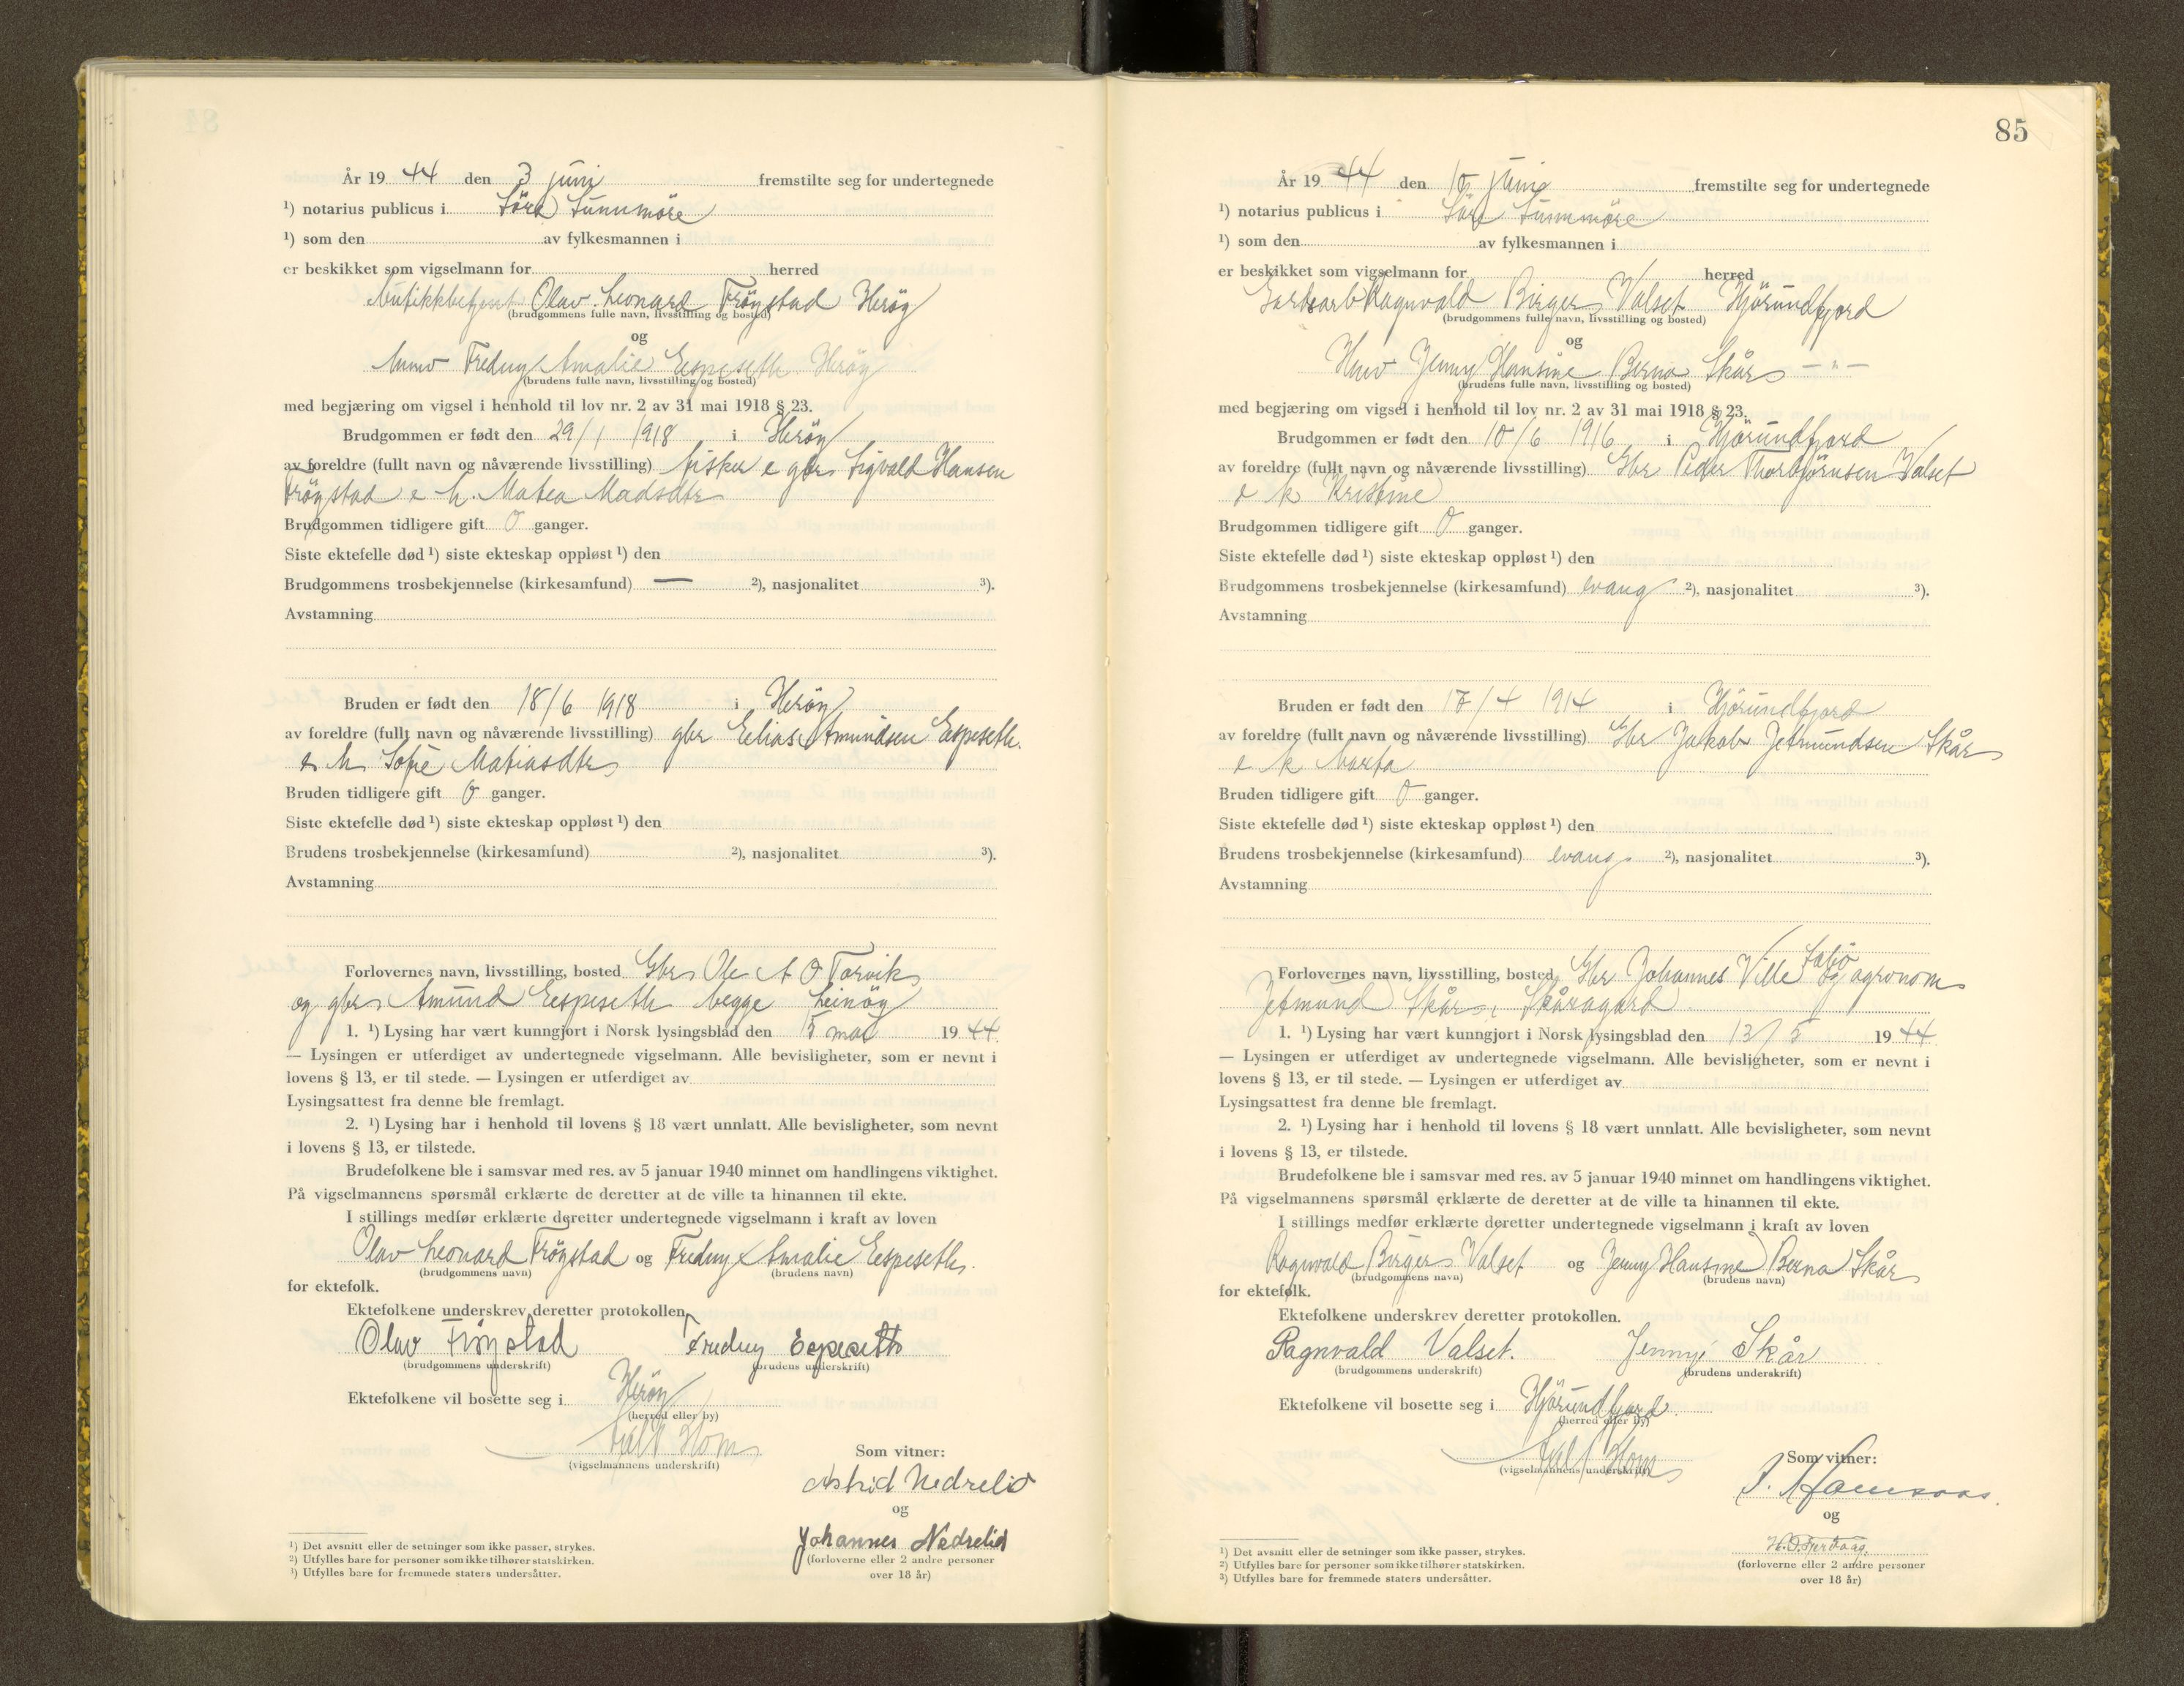 År 19 44 den 3 juni fremstilte seg for undertegnede
¹) notarius publicus i Söre Sunnmöre
¹) som den av fylkesmannen i
er beskikket som vigselmann for herred
butikkbetjent Olav Leonard Fröystad Heröy
(brudgommens fulle navn, livsstilling og bosted)
og
Fredny Amalie Espeseth Heröy
(brudens fulle navn, livsstilling og bosted)
med begjæring om vigsel i henhold til lov nr. 2 av 31 mai 1918 § 23.
Brudgommen er født den 29/1 1918 i Heröy
av foreldre (fullt navn og nåværende livsstilling) fisker e gbr Sigvald Hansen
Fröystad e h. Matea Madsdtr
Brudgommen tidligere gift 0 ganger.
Siste ektefelle død ¹) siste ekteskap oppløst ¹) den
Brudgommens trosbekjennelse (kirkesamfund) — ²), nasjonalitet ³).
Avstamning
Bruden er født den 18/6 1918 i Heröy
av foreldre (fullt navn og nåværende livsstilling) gbr Elias Amundsen Espeseth
e h Sofie Matiasdtr
Bruden tidligere gift 0 ganger.
Siste ektefelle død ¹) siste ekteskap oppløst ¹) den
Brudens trosbekjennelse (kirkesamfund) ²), nasjonalitet ³).
Avstamning
Forlovernes navn, livsstilling, bosted Gbr Ole A O Torvik
og gbr Amund Espeseth begge Leinöy
1. ¹) Lysing har vært kunngjort i Norsk lysingsblad den 15 mai 19 44
— Lysingen er utferdiget av undertegnede vigselmann. Alle bevisligheter, som er nevnt i
lovens § 13, er til stede. — Lysingen er utferdiget av
Lysingsattest fra denne ble fremlagt.
2. ¹) Lysing har i henhold til lovens § 18 vært unnlatt. Alle bevisligheter, som nevnt
i lovens § 13, er tilstede.
Brudefolkene ble i samsvar med res. av 5 januar 1940 minnet om handlingens viktighet.
På vigselmannens spørsmål erklærte de deretter at de ville ta hinannen til ekte.
I stillings medfør erklærte deretter undertegnede vigselmann i kraft av loven
Olav Leonard Fröystad og Fredny Amalie Espeseth
(brudgommens navn) (brudens navn)
for ektefolk.
Ektefolkene underskrev deretter protokollen.
Olav Fröystad Fredny Espeseth
(brudgommens underskrift) (brudens underskrift)
Ektefolkene vil bosette seg i Heröy
(herred eller by)
Hom
(vigselmannens underskrift)
Som vitner:
Astrid Nedrelid
og
Johannes Nedrelid
(forloverne eller 2 andre personer
over 18 år)
¹) Det avsnitt eller de setninger som ikke passer, strykes.
²) Utfylles bare for personer som ikke tilhører statskirken.
³) Utfylles bare for fremmede staters undersåtter.
85
År 19 44 den 10 juni fremstilte seg for undertegnede
¹) notarius publicus i Söre Sunnmöre
¹) som den av fylkesmannen i
er beskikket som vigselmann for herred
Gardsarb Ragnvald Birger Valset Hjörundfjord
(brudgommens fulle navn, livsstilling og bosted)
og
Jenny Hansine Berna Skår — " —
(brudens fulle navn, livsstilling og bosted)
med begjæring om vigsel i henhold til lov nr. 2 av 31 mai 1918 § 23.
Brudgommen er født den 10/6 1916 i Hjörundfjord
av foreldre (fullt navn og nåværende livsstilling) Gbr Peder Thorbjörnsen Valset
e k Kristine
Brudgommen tidligere gift 0 ganger.
Siste ektefelle død ¹) siste ekteskap oppløst ¹) den
Brudgommens trosbekjennelse (kirkesamfund) evang ²), nasjonalitet ³).
Avstamning
Bruden er født den 17/4 1914 i Hjörundfjord
av foreldre (fullt navn og nåværende livsstilling) Gbr Jakob Jetmundsen Skår
e k Marta
Bruden tidligere gift 0 ganger.
Siste ektefelle død ¹) siste ekteskap oppløst ¹) den
Brudens trosbekjennelse (kirkesamfund) evang ²), nasjonalitet ³).
Avstamning
Sæbö
Forlovernes navn, livsstilling, bosted Gbr Johannes Ville og agronom
Jetmund Skår, Skåragard
1. ¹) Lysing har vært kunngjort i Norsk lysingsblad den 13/5 19 44
— Lysingen er utferdiget av undertegnede vigselmann. Alle bevisligheter, som er nevnt i
lovens § 13, er til stede. — Lysingen er utferdiget av
Lysingsattest fra denne ble fremlagt.
2. ¹) Lysing har i henhold til lovens § 18 vært unnlatt. Alle bevisligheter, som nevnt
i lovens § 13, er tilstede.
Brudefolkene ble i samsvar med res. av 5 januar 1940 minnet om handlingens viktighet.
På vigselmannens spørsmål erklærte de deretter at de ville ta hinannen til ekte.
I stillings medfør erklærte deretter undertegnede vigselmann i kraft av loven
Ragnvald Birger Valset og Jenny Hansine Berna Skår
(brudgommens navn) (brudens navn)
for ektefolk.
Ektefolkene underskrev deretter protokollen.
Ragnvald Valset. Jenny Skår
(brudgommens underskrift) (brudens underskrift)
Ektefolkene vil bosette seg i Hjörundfjord
(herred eller by)
Hom
(vigselmannens underskrift)
Som vitner:
og
(forloverne eller 2 andre personer
over 18 år)
¹) Det avsnitt eller de setninger som ikke passer, strykes.
²) Utfylles bare for personer som ikke tilhører statskirken.
³) Utfylles bare for fremmede staters undersåtter.